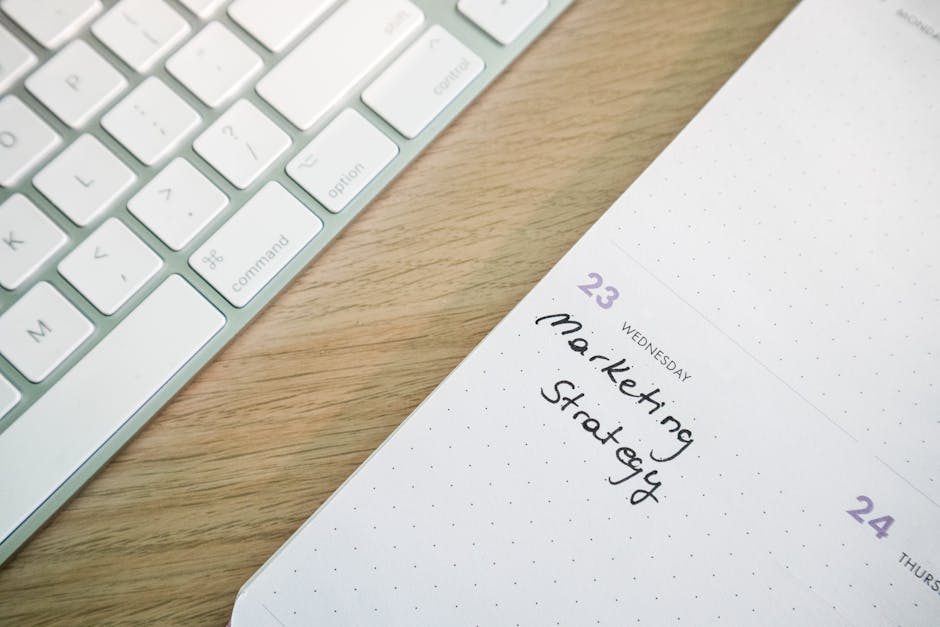 shift
control
option
command
P
O
L
K
M
?
/
>
.
<
,
MONDAY
23
WEDNESDAY
Marketing
Strategy
24
THURS